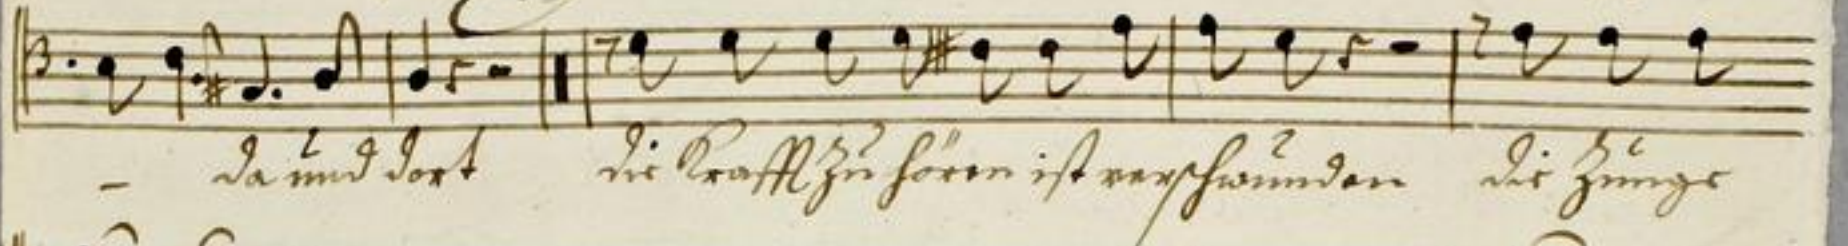 – da und dort die Krafft zu hören ist verschwunden die Zunge